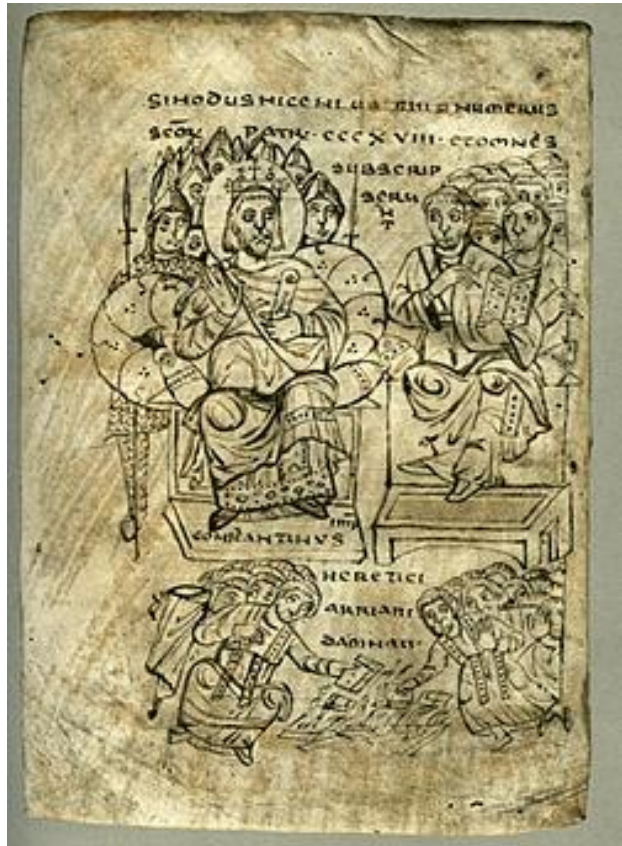 SINODUS NICENI NUMERUS
SCŌR PATRU · CCCXVIII · ET OMNES
SUBSCRIP
SERU
NT
IMP
CONSTANTINUS
HERETICI
ARRIANI
DAMNATI